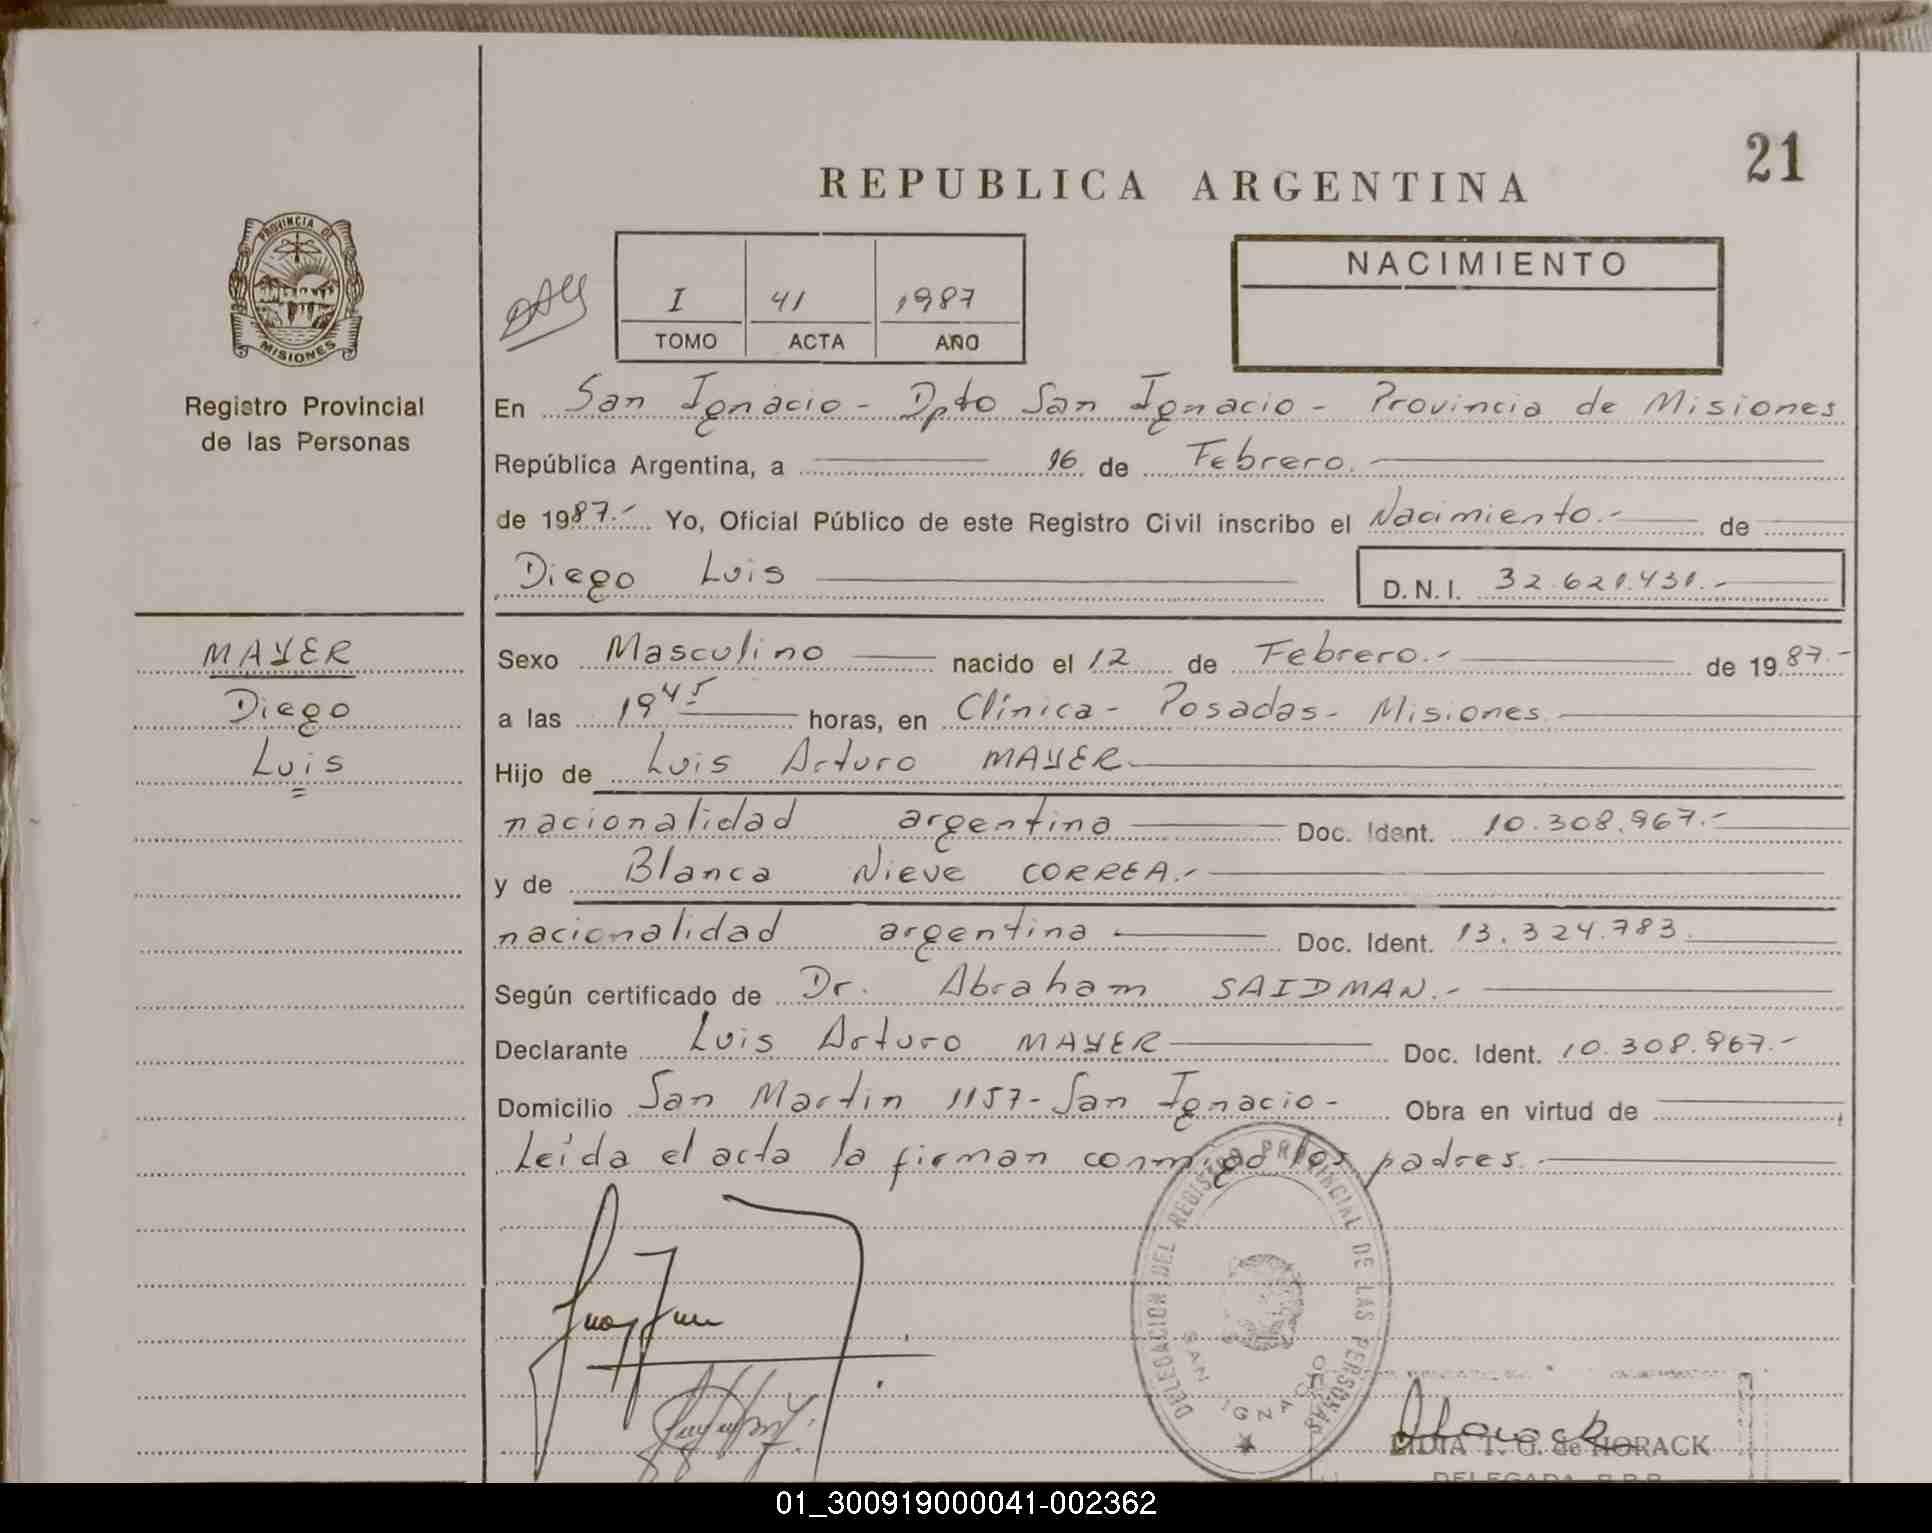 21
REPUBLICA ARGENTINA
PROVINCIA DE
MISIONES
NACIMIENTO
I 41 1987
TOMO ACTA AÑO
Registro Provincial
de las Personas
En San Ignacio - Dpto San Ignacio - Provincia de Misiones
República Argentina, a 16 de Febrero.
de 1987.- Yo, Oficial Público de este Registro Civil inscribo el Nacimiento.- de
Diego Luis D.N.I. 32.621.431.-
MAYER
Diego
Luis
Sexo Masculino nacido el 12 de Febrero.- de 1987.-
a las 19 45 horas, en Clínica - Posadas - Misiones.
Hijo de Luis Arturo MAYER
nacionalidad argentina Doc. Ident. 10.308.967.-
y de Blanca Nieve CORREA.-
nacionalidad argentina Doc. Ident. 13.324.783.
Según certificado de Dr. Abraham SAIDMAN.-
Declarante Luis Arturo MAYER Doc. Ident. 10.308.967.-
Domicilio San Martin 1157 - San Ignacio - Obra en virtud de
Leída el acta la firman conmigo los padres.
DELEGACION DEL REGISTRO PROVINCIAL DE LAS PERSONAS
SAN IGNACIO
LIDIA T. G. de HORACK
DELEGADA R.P.P.
01_300919000041-002362